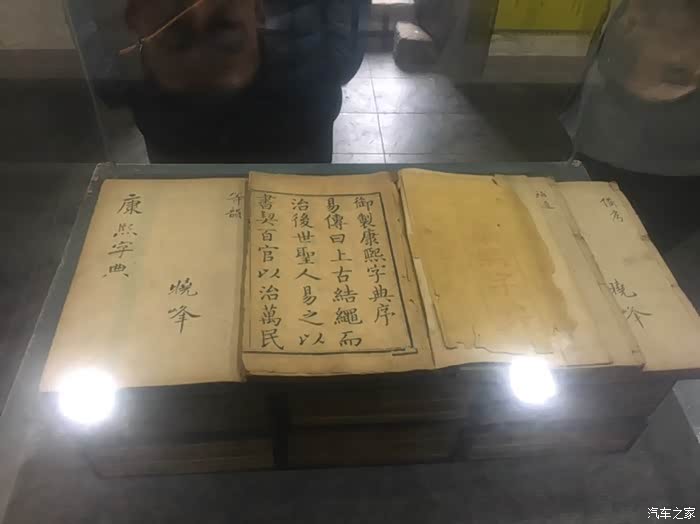 康熙字典
曉峰
等韻
御製康熙字典序
易傳曰上古結繩而
治後世聖人易之以
書契百官以治萬民
補遺
備考
曉峰
汽车之家